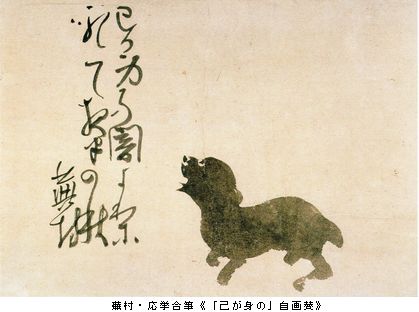 己か身の闇より
吼て夜半の秋
蕪村
蕪村・応挙合筆《「己が身の」自画賛》